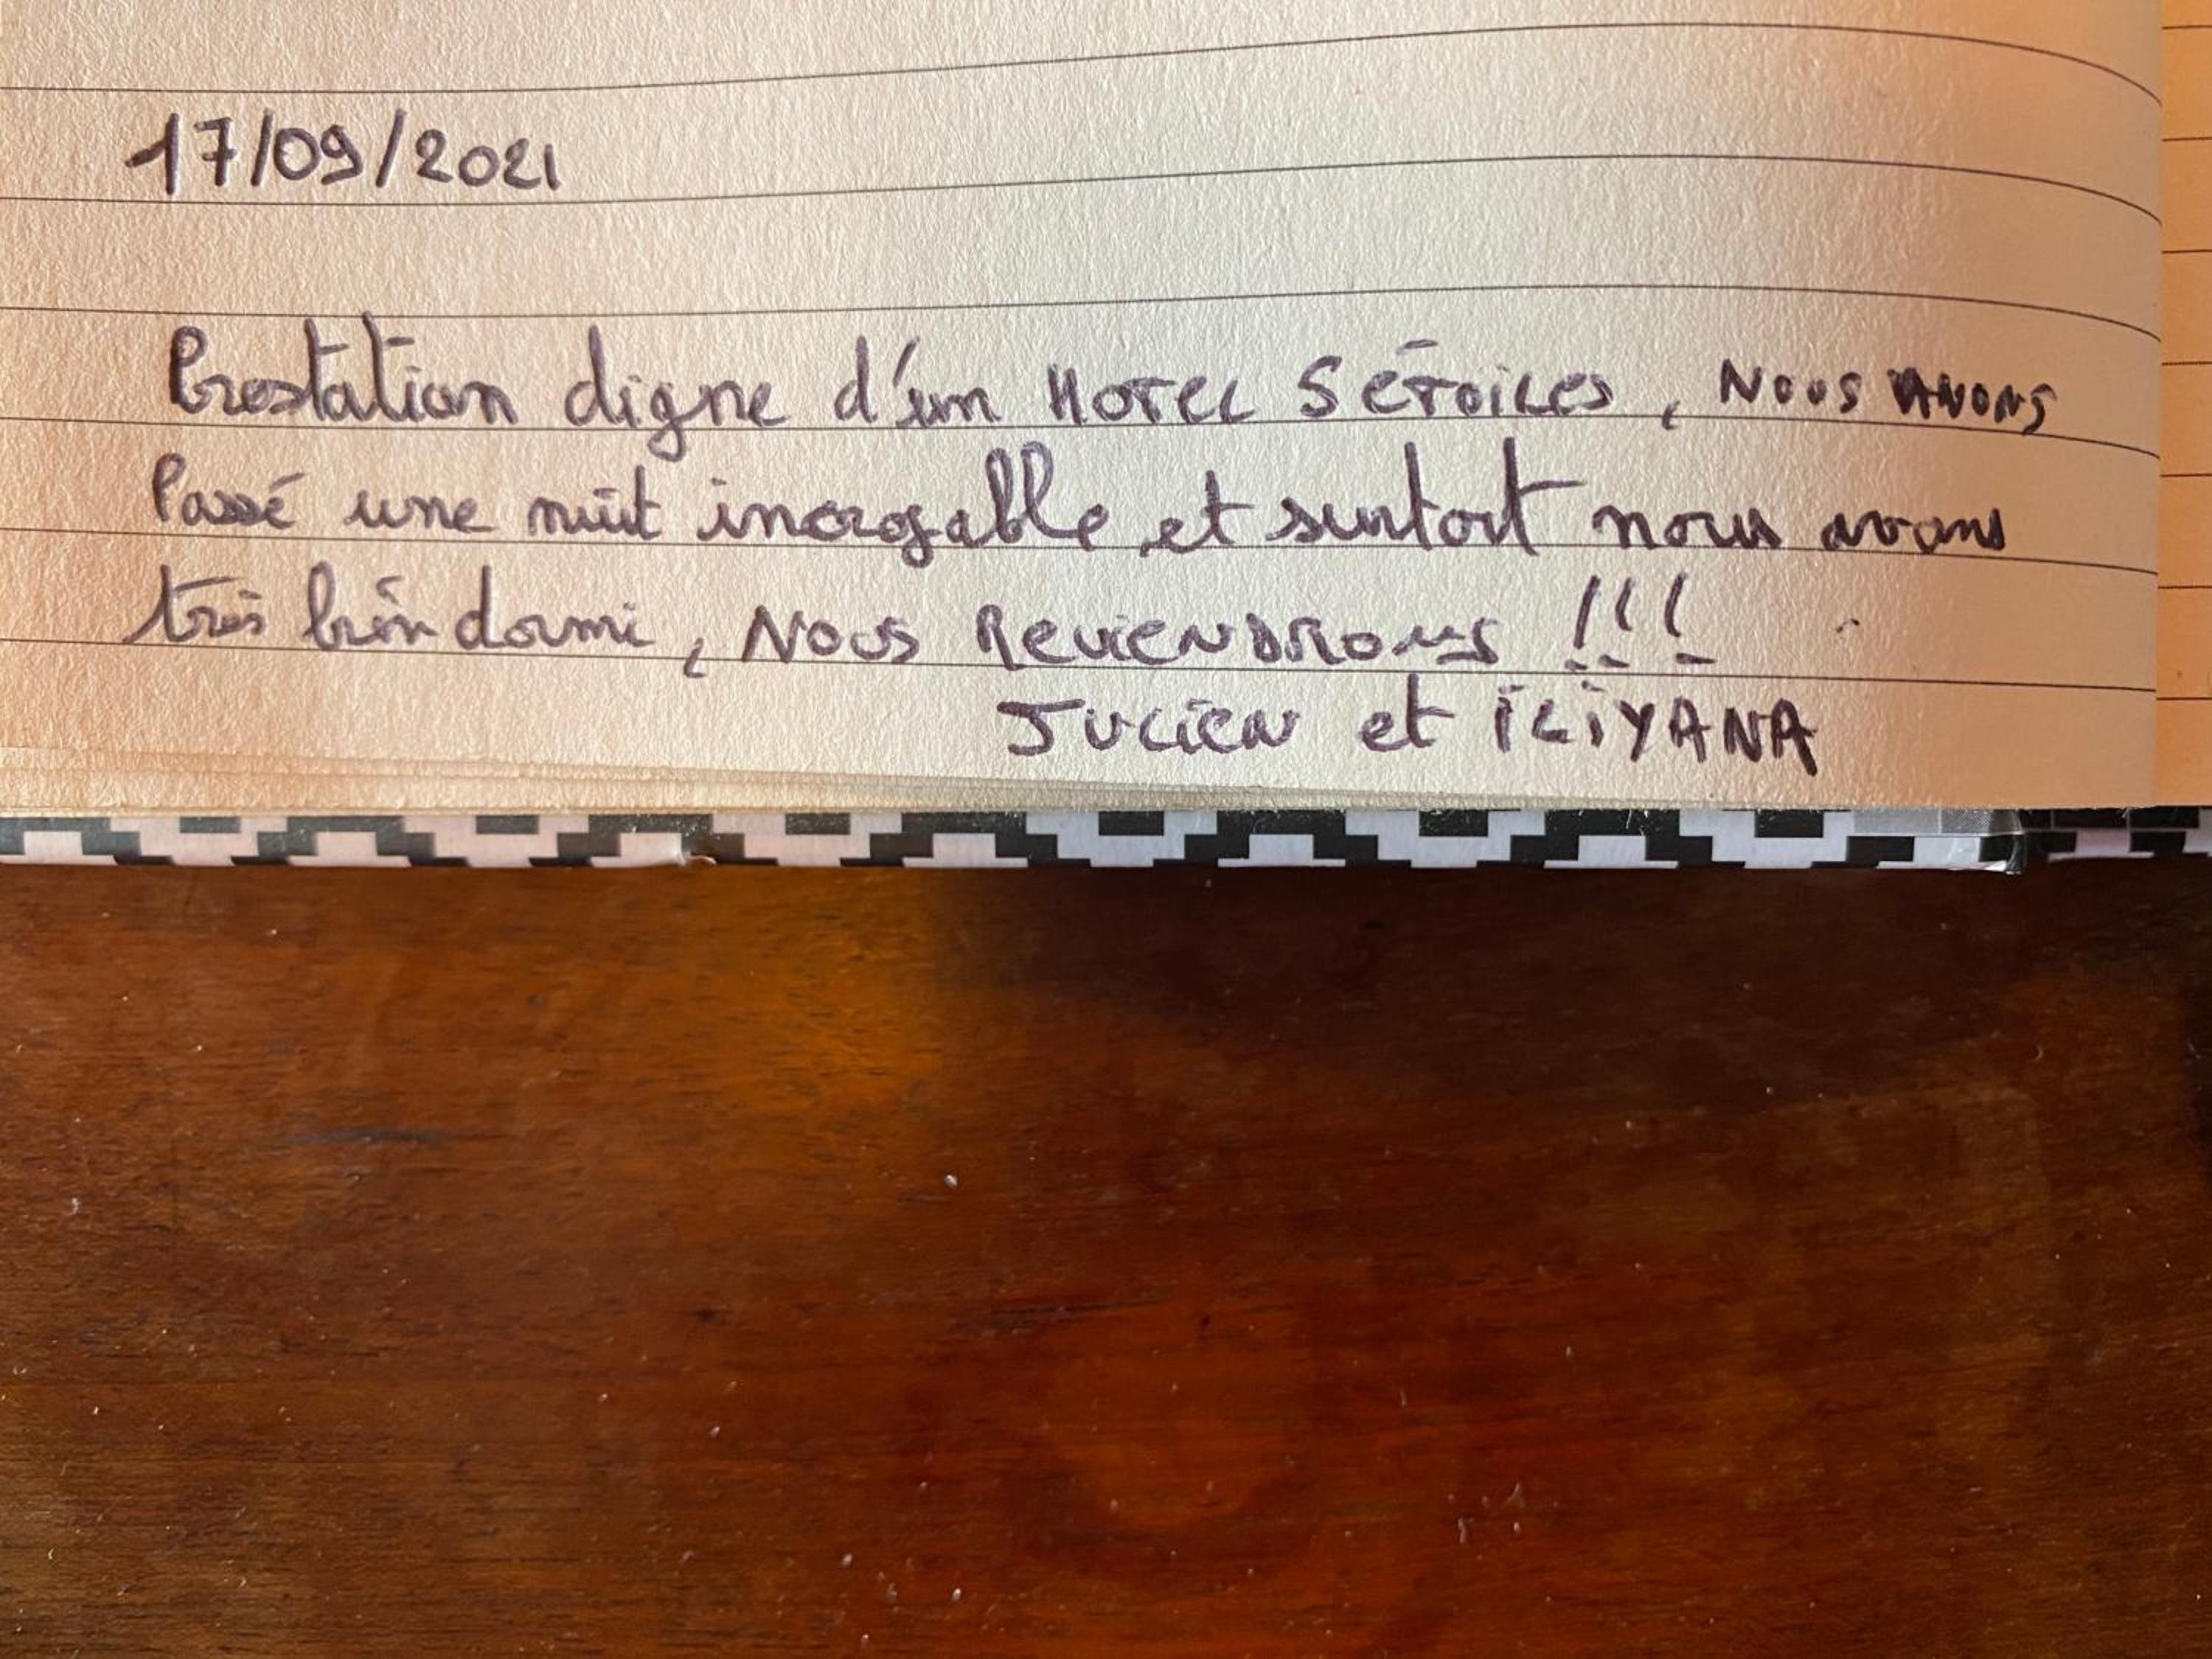 17/09/2021
Prestation digne d'un HOTEL 5 éToiLes, NOUS AVONS
Passé une nuit incroyable et surtout nous avons
très bien dormi, NOUS ReVIENDRONS !!!
JULIEN et ILIYANA